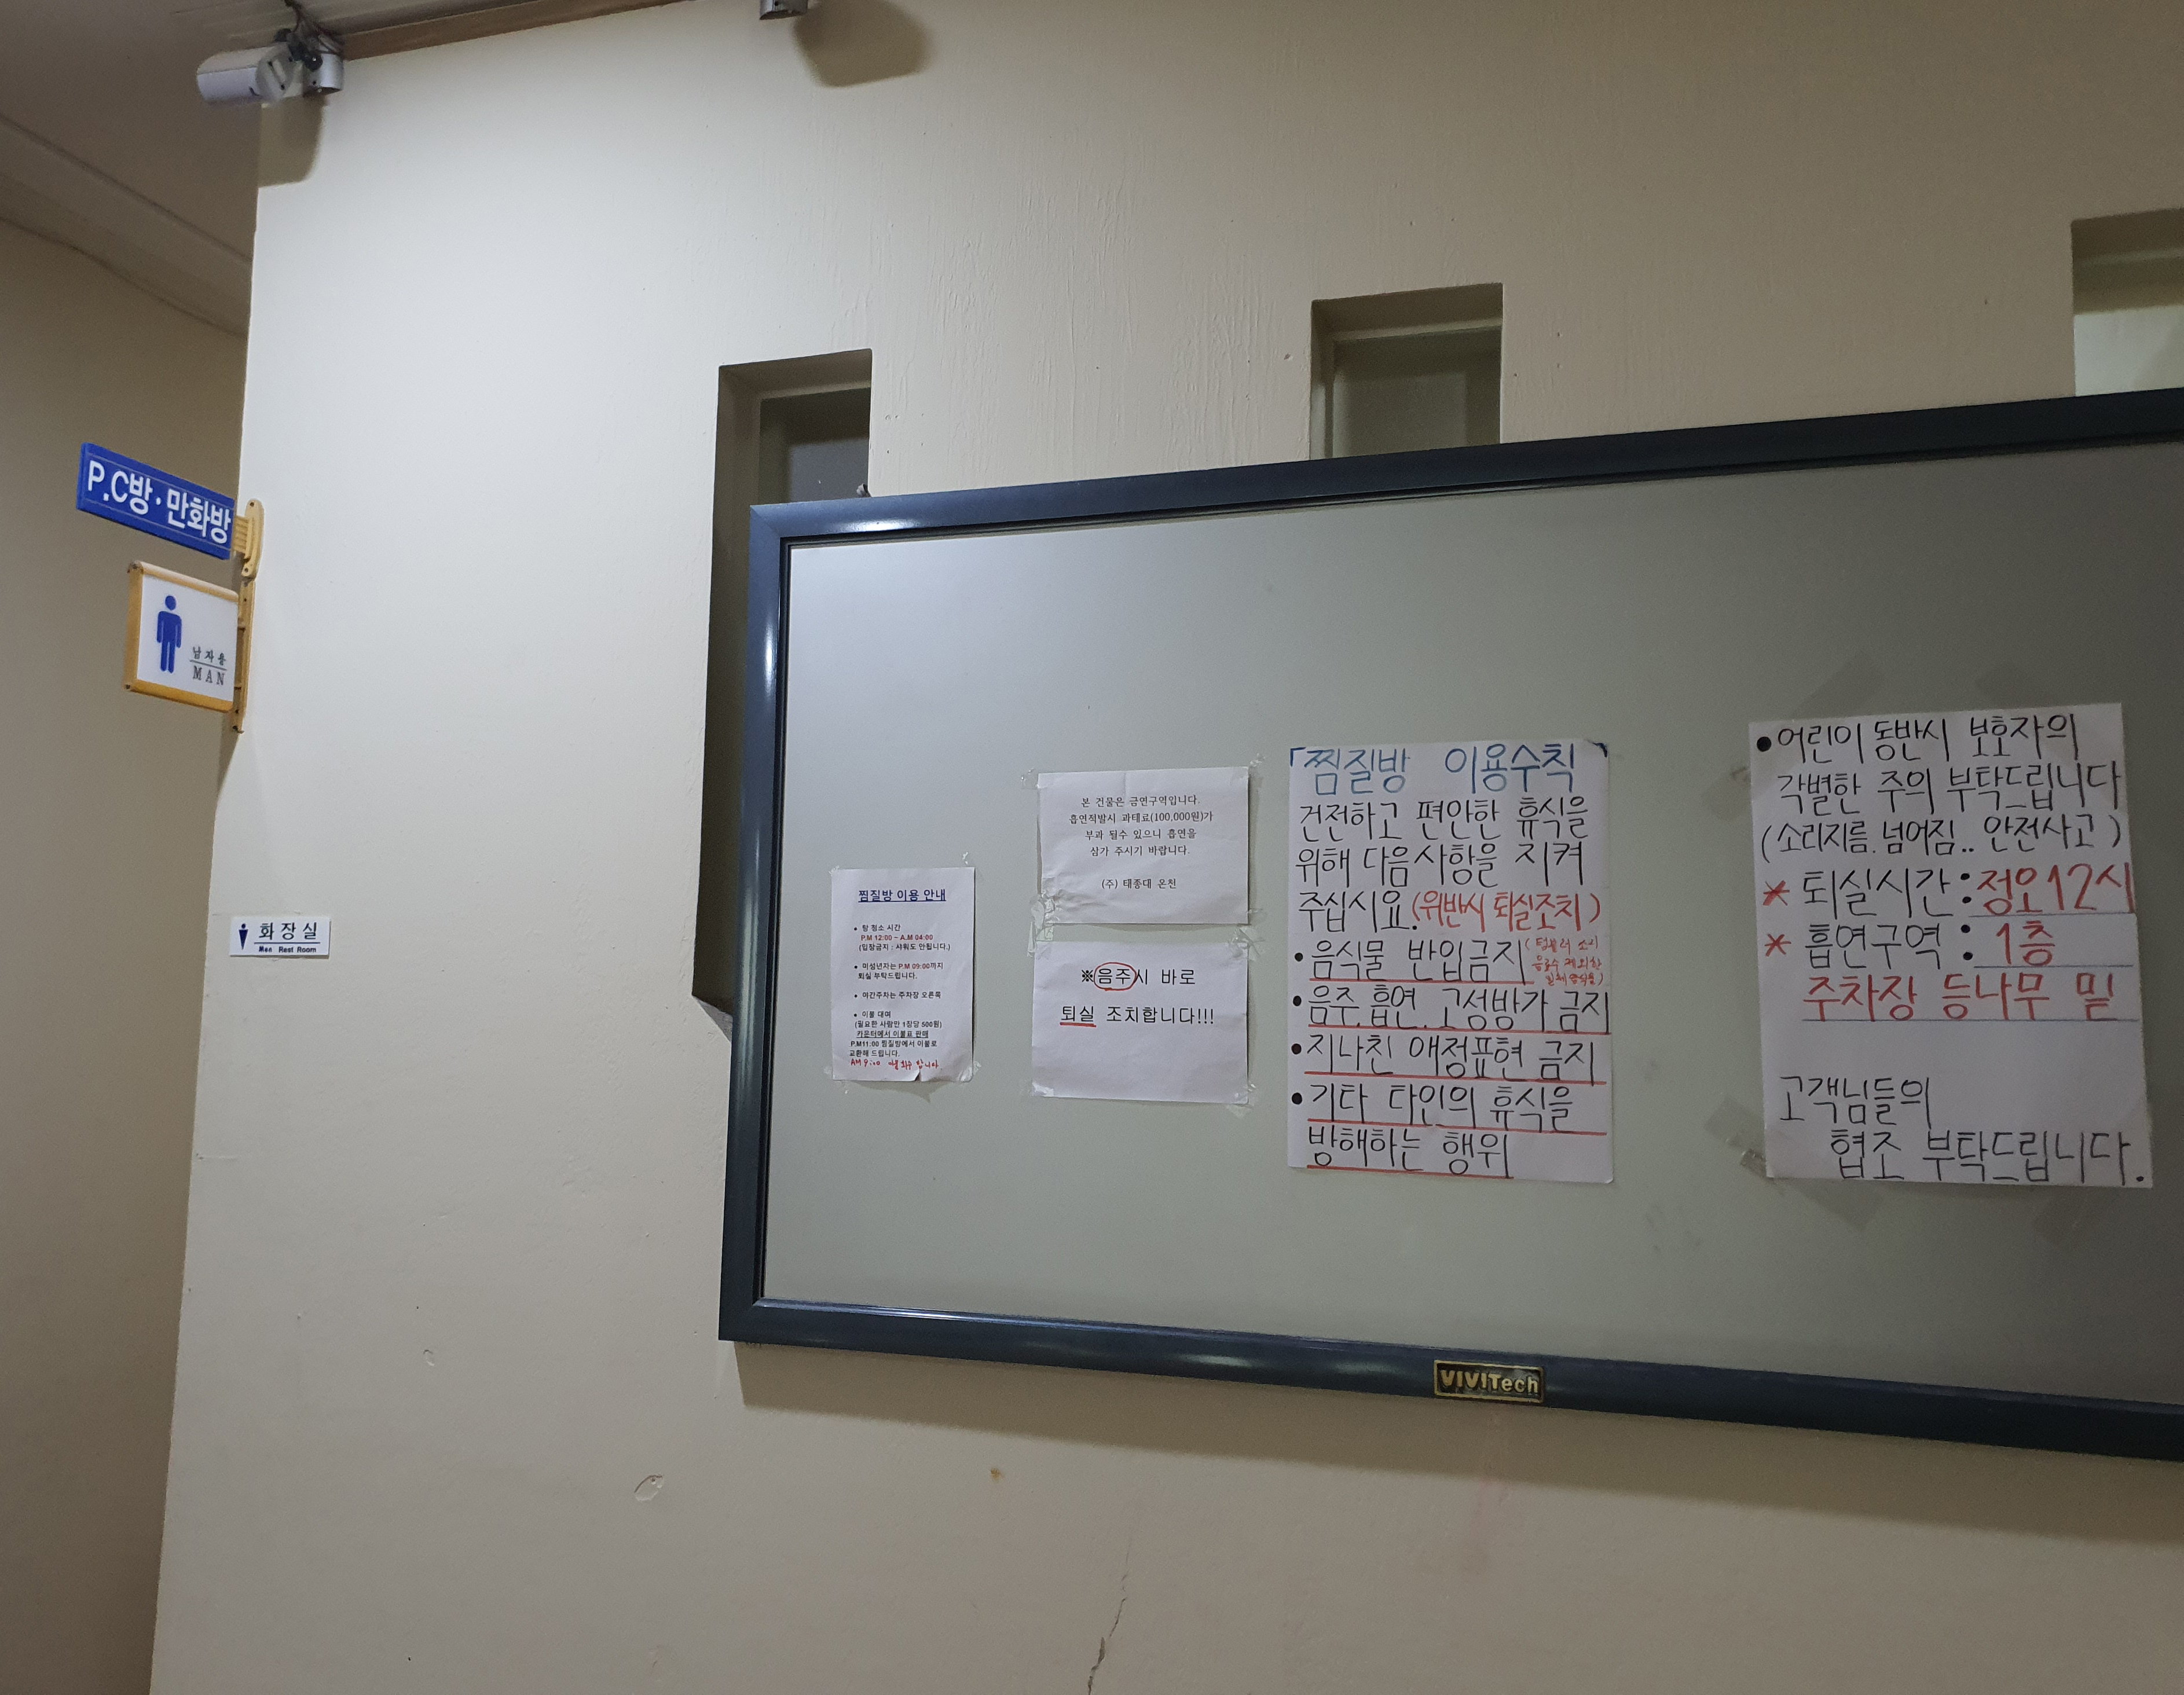 P.C방·만화방
남자용
MAN
화장실
Men Rest Room
찜질방 이용 안내
● 탕 청소 시간
P.M 12:00 ~ A.M 04:00
(입장금지 : 샤워도 안됩니다.)
● 미성년자는 P.M 09:00까지
퇴실 부탁드립니다.
● 야간주차는 주차장 오른쪽
● 이불 대여
(필요한 사람만 1장당 500원)
카운터에서 이불표 판매
P.M11:00 찜질방에서 이불로
교환해 드립니다.
AM 9:00 합니다.
본 건물은 금연구역입니다.
흡연적발시 과태료(100,000원)가
부과 될수 있으니 흡연을
삼가 주시기 바랍니다.
(주) 태종대 온천
※음주시 바로
퇴실 조치합니다!!!
「찜질방 이용수칙」
건전하고 편안한 휴식을
위해 다음사항을 지켜
주십시요.(위반시 퇴실조치)
• 음식물 반입금지
음료수 제외한
• 음주.흡연.고성방가 금지
• 지나친 애정표현 금지
• 기타 타인의 휴식을
방해하는 행위
• 어린이 동반시 보호자의
각별한 주의 부탁드립니다
(소리지름.넘어짐.. 안전사고)
* 퇴실시간 : 정오12시
* 흡연구역 : 1층
주차장 등나무 밑
고객님들의
협조 부탁드립니다.
VIVITech